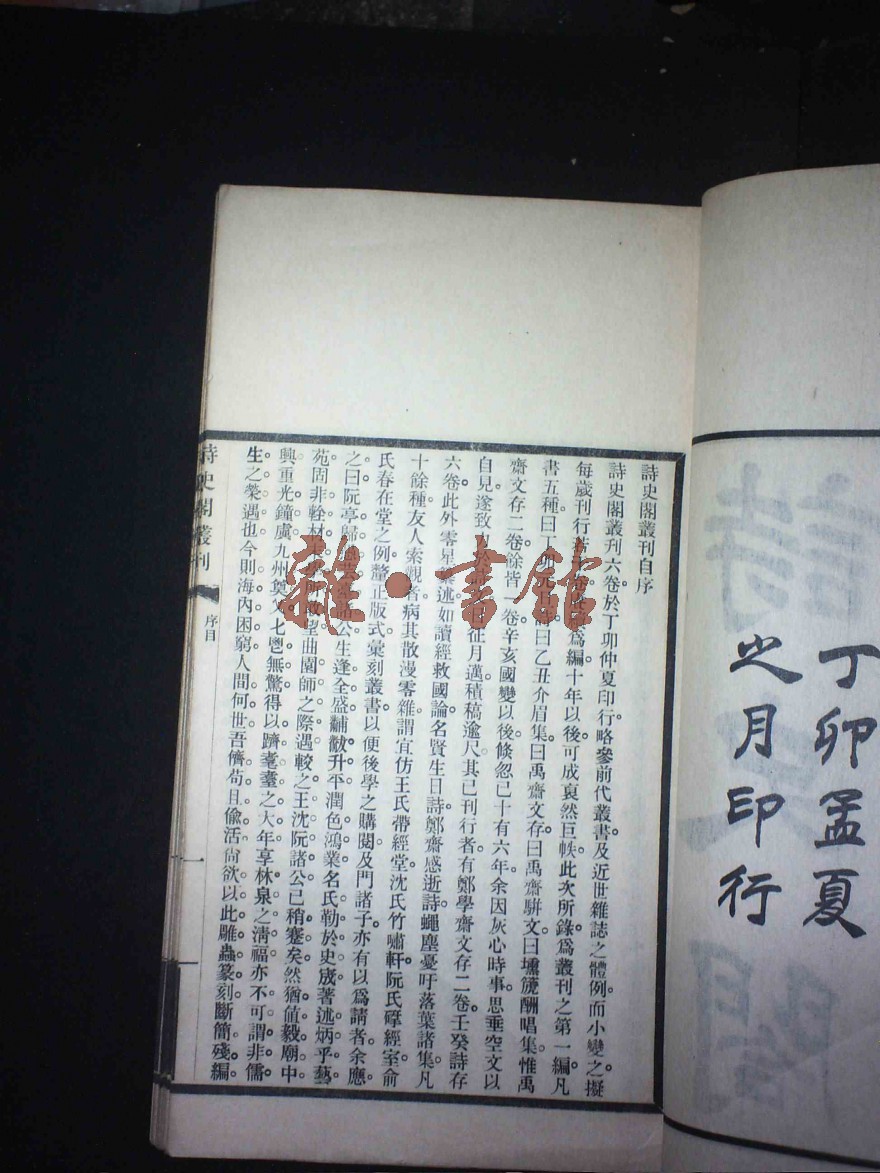 丁卯孟夏
之月印行
詩史閣叢刊自序
詩史閣叢刊六卷於丁卯仲夏印行略參前代叢書及近世雜誌之體例而小變之擬
每歲刊行 爲編十年以後可成裒然巨帙此次所錄爲叢刊之第一編凡
書五種曰丁卯 曰乙丑介眉集曰禹齋文存曰禹齋駢文曰壎篪酬唱集惟禹
齋文存二卷餘皆一卷辛亥國變以後倐忽已十有六年余因灰心時事思垂空文以
自見遂致力於 日征月邁積稿逾尺其已刊行者有鄭學齋文存二卷壬癸詩存
六卷此外零星纂述如讀經救國論名賢生日詩鄭齋感逝詩蠅塵憂吁落葉諸集凡
十餘種友人索觀者病其散漫零雜謂宜仿王氏帶經堂沈氏竹嘯軒阮氏揅經室俞
氏春在堂之例釐正版式彙刻叢書以便後學之購閱及門諸子亦有以爲請者余應
之曰阮亭歸 公生逢全盛黼黻升平潤色鴻業名氏勒於史宬著述炳乎藝
苑固非輇材 所敢望曲園師之際遇較之王沈阮諸公已稍蹇矣然猶値毅廟中
興重光鐘虡九州奠文七鬯無驚得以躋耄耋之大年享林泉之淸福亦不可謂非儒
生之榮遇也今則海內困窮人間何世吾儕苟且偸活尙欲以此雕蟲篆刻斷簡殘編
詩史閣叢刊
序目
一
雜·書館